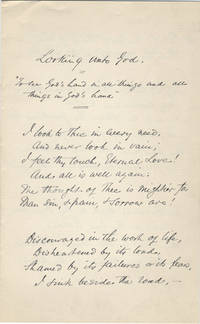 Looking unto God.
"To see God's hand in all things and all
things in God's hand"
I look to Thee in every need,
And never look in vain;
I feel thy touch, Eternal Love!
And all is well again.
The thought of Thee is mightier far
Than sin, & pain, & sorrow are!
Discouraged in the work of life,
Disheartened by its load,
Shamed by its failures or its fears,
I sink beside the road, —